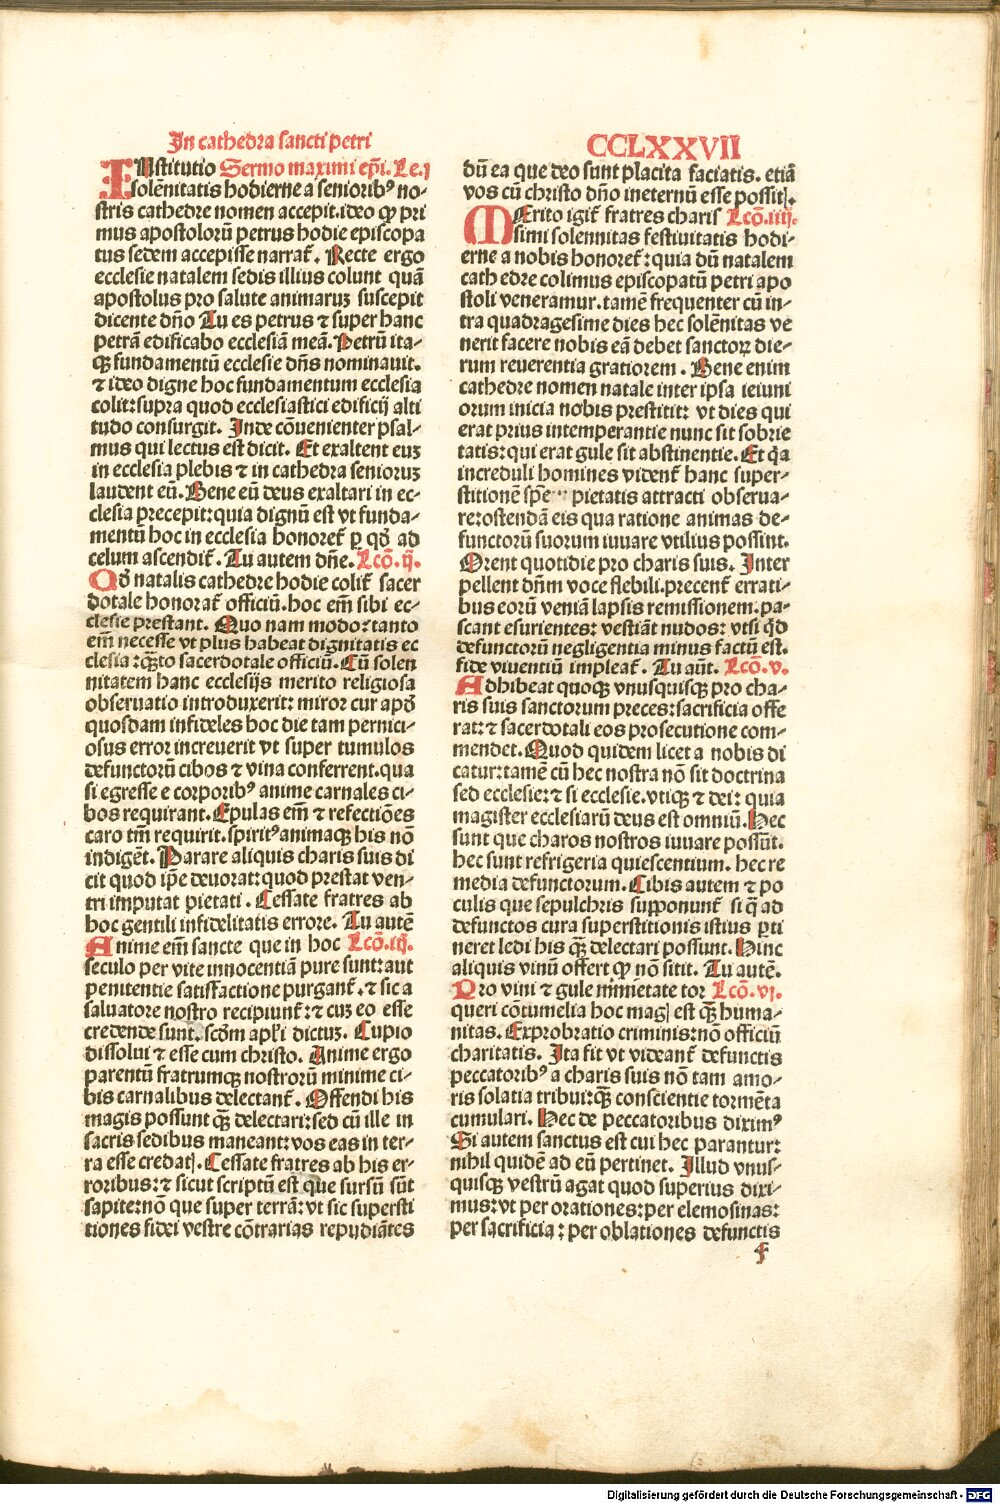 In cathedra sancti petri
INstitutio Sermo maximi ep̄i. Le.j
solēnitatis hodierne a senioribꝰ no-
stris cathedre nomen accepit.ideo ꝙ pri
mus apostolorū petrus hodie episcopa
tus sedem accepisse narrat̄. Recte ergo
ecclesie natalem sedis illius colunt quā
apostolus pro salute animaruꝫ suscepit
dicente dño Tu es petrus ⁊ super hanc
petrā edificabo ecclesiā meā. Petrū ita-
qꝫ fundamentū ecclesie dñs nominauit.
⁊ ideo digne hoc fundamentum ecclesia
colit:supra quod ecclesiastici edificij alti
tudo consurgit. Inde cōuenienter psal-
mus qui lectus est dicit. Et exaltent euꝫ
in ecclesia plebis ⁊ in cathedra senioruꝫ
laudent eū. Bene eū deus exaltari in ec-
clesia precepit:quia dignū est vt funda-
mentū hoc in ecclesia honoret̄ ꝑ qd̄ ad
celum ascendit̄. Tu autem dñe. Lcō.ij.
Qd̄ natalis cathedre hodie colit̄ sacer
dotale honorat̄ officiū.hoc em̄ sibi ec-
clesie prestant. Quo nam modo:tanto
em̄ necesse vt plus habeat dignitatis ec
clesia:qꝫto sacerdotale officiū. Cū solen
nitatem hanc ecclesijs merito religiosa
obseruatio introduxerit: miror cur apd̄
quosdam infideles hoc die tam pernici-
osus error increuerit vt super tumulos
defunctorū cibos ⁊ vina conferrent.qua
si egresse e corporibꝰ anime carnales ci-
bos requirant. Epulas em̄ ⁊ refectiōes
caro tm̄ requirit.spiritꝰ animaqꝫ his nō
indigēt. Parare aliquis charis suis di
cit quod ip̄e deuorat:quod prestat ven-
tri imputat pietati. Cessate fratres ab
hoc gentili infidelitatis errore. Tu autē
Anime em̄ sancte que in hoc Lcō.iij.
seculo per vite innocentiā pure sunt:aut
penitentie satisfactione purgant̄.⁊ sic a
saluatore nostro recipiunt̄:⁊ cuꝫ eo esse
credende sunt. scd̄m apl'i dictuꝫ. Cupio
dissolui ⁊ esse cum christo. Anime ergo
parentū fratrumqꝫ nostrorū minime ci-
bis carnalibus delectant̄. Offendi his
magis possunt qꝫ delectari:sed cū ille in
sacris sedibus maneant:vos eas in ter-
ra esse credatꝭ. Cessate fratres ab his er-
roribus:⁊ sicut scriptū est que sursū sūt
sapite:nō que super terrā:vt sic supersti
tiones fidei vestre cōtrarias repudiātes
CCLXXVII
dū ea que deo sunt placita faciatis. etiā
vos cū christo dño ineternū esse possitꝭ.
MErito igit̄ fratres charis Lcō.iiij.
simi solennitas festiuitatis hodi-
erne a nobis honoret̄:quia dū natalem
cathedre colimus episcopatū petri apo
stoli veneramur.tamē frequenter cū in-
tra quadragesime dies hec solēnitas ve
nerit facere nobis eā debet sanctoꝝ die-
rum reuerentia gratiorem. Bene enim
cathedre nomen natale inter ipsa ieiuni
orum inicia nobis prestitit: vt dies qui
erat prius intemperantie nunc sit sobrie
tatis:qui erat gule sit abstinentie. Et qa
increduli homines vident̄ hanc super-
stitionē sp̄e pietatis attracti obserua-
re:ostendā eis qua ratione animas de-
functorū suorum iuuare vtilius possint.
Orent quotidie pro charis suis. Inter
pellent dn̄m voce flebili.precent̄ errati-
bus eorū veniā lapsis remissionem:pa-
scant esurientes: vestiāt nudos: vtsi qd̄
defunctorū negligentia minus factū est.
fide viuentiū impleat̄. Tu aūt. Lcō.v.
Adhibeat quoqꝫ vnusquisqꝫ pro cha-
ris suis sanctorum preces:sacrificia offe
rat:⁊ sacerdotali eos prosecutione com-
mendet. Quod quidem licet a nobis di
catur:tamē cū hec nostra nō sit doctrina
sed ecclesie:⁊ si ecclesie.vtiqꝫ ⁊ dei: quia
magister ecclesiarū deus est omniū. Hec
sunt que charos nostros iuuare possūt.
hec sunt refrigeria quiescentium. hec re
media defunctorum. Cibis autem ⁊ po
culis que sepulchris supponunt̄ si qꝫ ad
defunctos cura superstitionis istius ꝑti
neret ledi his qꝫ delectari possunt. Hinc
aliquis vinū offert ꝙ nō sitit. Tu autē.
Pro vini ⁊ gule īmēnietate tor Lcō.vj.
queri cōtumelia hoc magꝭ est qꝫ huma-
nitas. Exprobratio criminis:nō officiū
charitatis. Ita fit vt videant̄ defunctis
peccatoribꝰ a charis suis nō tam amo-
ris solatia tribui:qꝫ conscientie tormēta
cumulari. Hec de peccatoribus diximꝰ
Si autem sanctus est cui hec parantur:
nihil quidē ad eū pertinet. Illud vnus-
quisqꝫ vestrū agat quod superius dixi-
mus:vt per orationes:per elemosinas:
per sacrificia: per oblationes defunctis
f
Digitalisierung gefördert durch die Deutsche Forschungsgemeinschaft - DFG